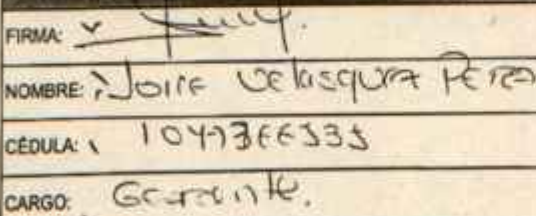 FIRMA:
NOMBRE: Joice Velasquez Perez
CÉDULA: 1047366535
CARGO: Gerente.